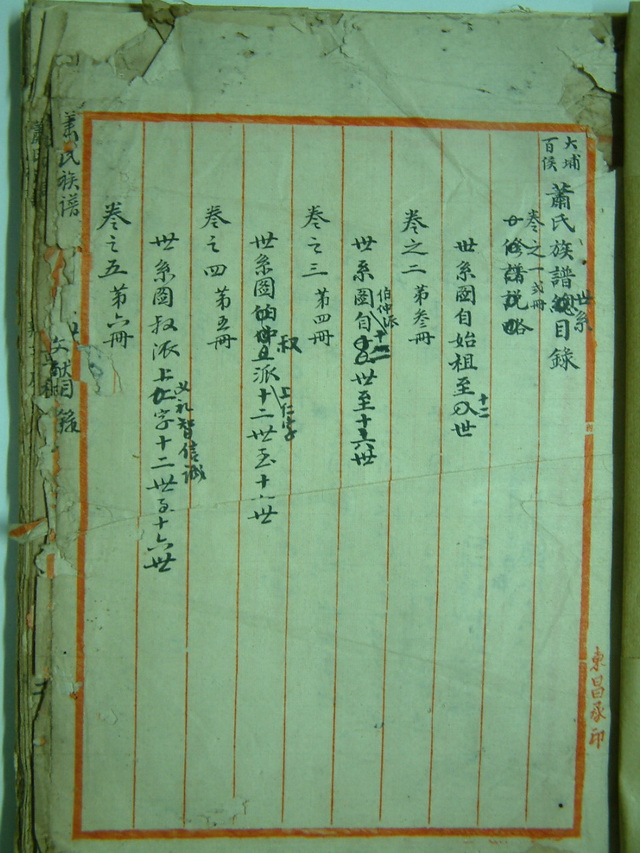 大埔百侯 蕭氏族譜世系目錄
卷之一 弍冊
修譜說略
世系圖自始祖至十二世
卷之二 第叁冊
伯仲派
世系圖自十二世至十六世
卷之三 第四冊
世系圖叔派上仁字十二世至十六世
卷之四 第五冊
世系圖叔派上義礼智信誠字十二世至十六世
卷之五 第六冊
文献目錄
蕭氏族谱
東昌承印